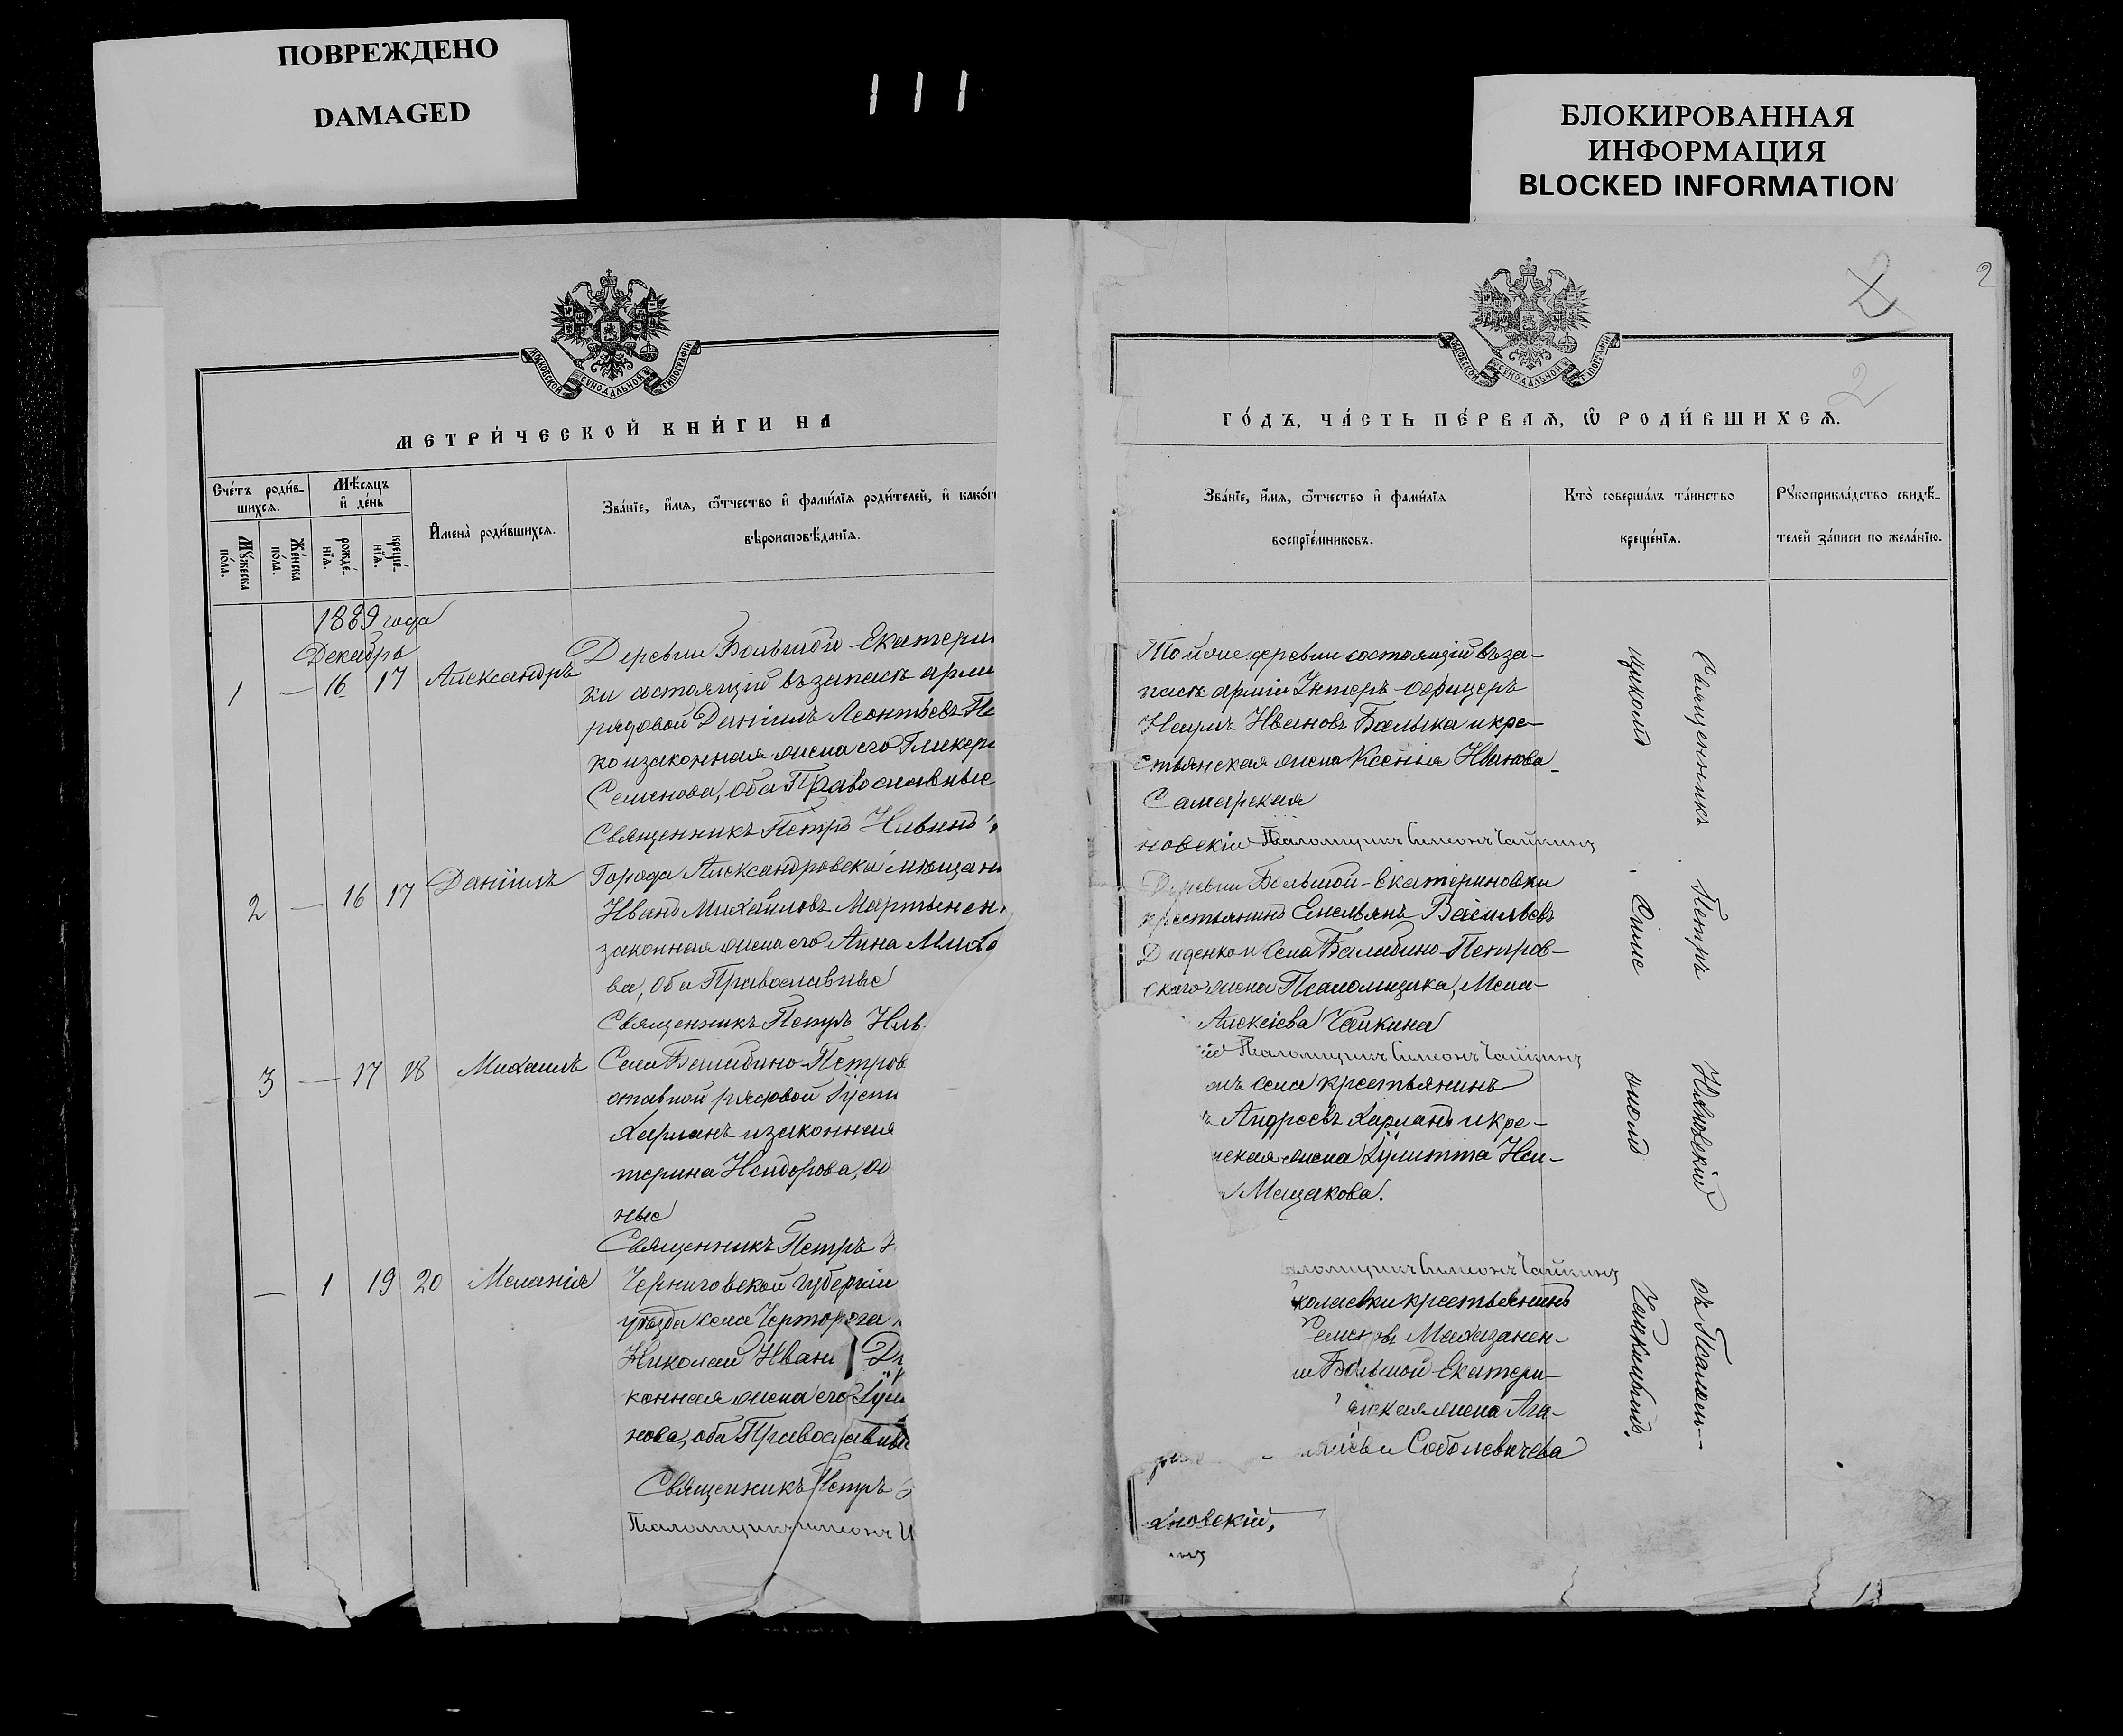 ПОВРЕЖДЕНО
DAMAGED
111
БЛОКИРОВАННАЯ
ИНФОРМАЦИЯ
BLOCKED INFORMATION
МЕТРИ́ЧЕСКОЙ КНИ́ГИ НА
Сче́тъ роди́в-
шихсѧ.
Мѣ́сяцъ
и҆ де́нь
Мꙋ́жеска
по́ла.
Же́нска
по́ла.
рожде́-
нїѧ.
креще́-
нїѧ.
И҆мена̀ роди́вшихсѧ.
Зва́нїе, и҆́мѧ, ѻ҆́тчество и҆ фами́лїѧ роди́телей, и҆ како́г
вѣроисповѣ́данїѧ.
1889 года
Декабрь
1 — 16 17 Александръ
Деревни Большой-Екатерин
ки состоящій въ запасѣ арми
рядовой Даніилъ Леонтьевъ
ко и законная жена его Гликер
Семенова, оба Православные
Священникъ Петръ
2 — 16 17 Даніилъ
Города Александровска мѣщан
Иванъ Михайловъ Мартынен
законная жена его Анна Михо
ва, Оба Православные
Священникъ Петръ
3 — 17 18 Михаилъ
Села Балабино-Петров
ставной рядовой Густи
Харланъ и законная
терина Исидорова, об
ные
Священникъ Петръ
— 1 19 20 Меланія
Черниговской губерніи
уѣзда села Чарторега
Николай Иван
конная жена его
нова, оба Православны
Священникъ Петръ
Псаломщикъ Симеонъ Ч
2
2
2
ГО́ДЪ, ЧА́СТЬ ПЕ́РВАѦ, Ѡ҆ РОДИ́ВШИХСѦ.
Зва́нїе, и҆́мѧ, ѻ҆́тчество и҆ фами́лїѧ
воспрїе́мниковъ.
Кто̀ соверша́лъ та́инство
креще́нїѧ.
Рꙋкоприкла́дство свидѣ́-
телей за́писи по жела́нїю.
Той же деревни состоящій въ за-
пасѣ арміи Унтеръ-Офицеръ
Ивановъ Балыка и кре-
стьянская жена Ксенія Иванова
Самарская
новскій Псаломщикъ Симеонъ Чайкинъ
Деревни Большой-Екатериновки
крестьянинъ Емельянъ Васильевъ
Диденко и Села Балабино-Петров-
скаго жена Псаломщика, Мела-
Алексіева Чайкина
Псаломщикъ Симеонъ Чайкинъ
села крестьянинъ
Андреевъ Харланъ и кре-
нская жена Іулитта Иси-
Мещакова.
аломщикъ Симеонъ Чайкинъ
колаевки крестьянинъ
и Большой-Екатери-
нская жена Ага-
Соболевичева
новскій,
инъ
Священникъ Петръ Нивяновскій съ Псалом-
щикомъ Симеономъ Чайкинымъ.